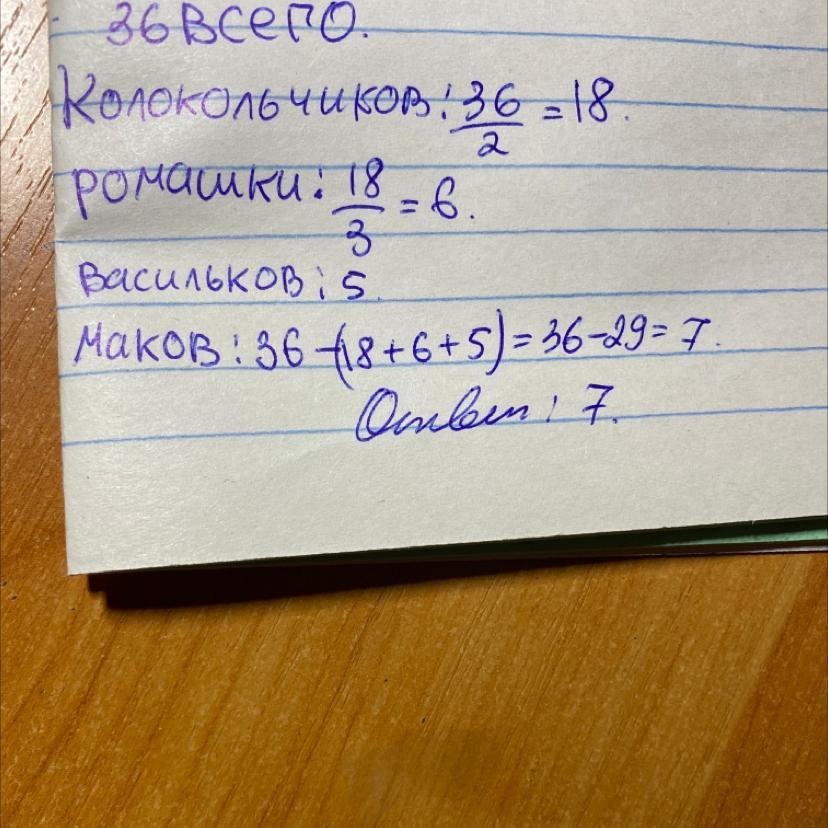 36 всего.
Колокольчиков: 36/2 = 18.
ромашки: 18/3 = 6.
васильков: 5.
Маков: 36-(18+6+5)=36-29=7.
Ответ: 7.